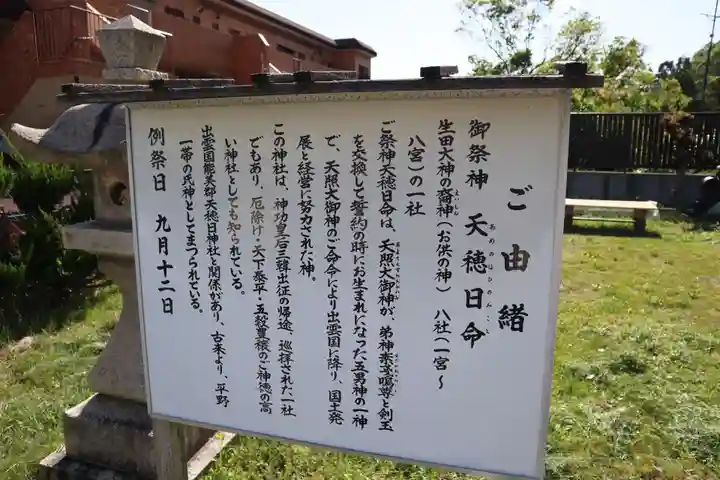 ご由緒
御祭神 天穂日命
あめのほひのみこと
生田大神の裔神(お供の神) 八社(一宮~
えいしん
八宮)の一社
ご祭神天穂日命は、天照大御神が、弟神素戔嗚尊と剣玉
を交換して誓約の時にお生まれになった五男神の一神
で、天照大御神のご命令により出雲国に降り、国土発
展と経営に努力された神。
この神社は、神功皇后三韓出征の帰途、巡拝された一社
でもあり、厄除け・天下泰平・五穀豊穣のご神徳の高
い神社としても知られている。
出雲国能美郡天穂日神社と関係があり、古来より、平野
一帯の氏神としてまつられている。
例祭日 九月十二日